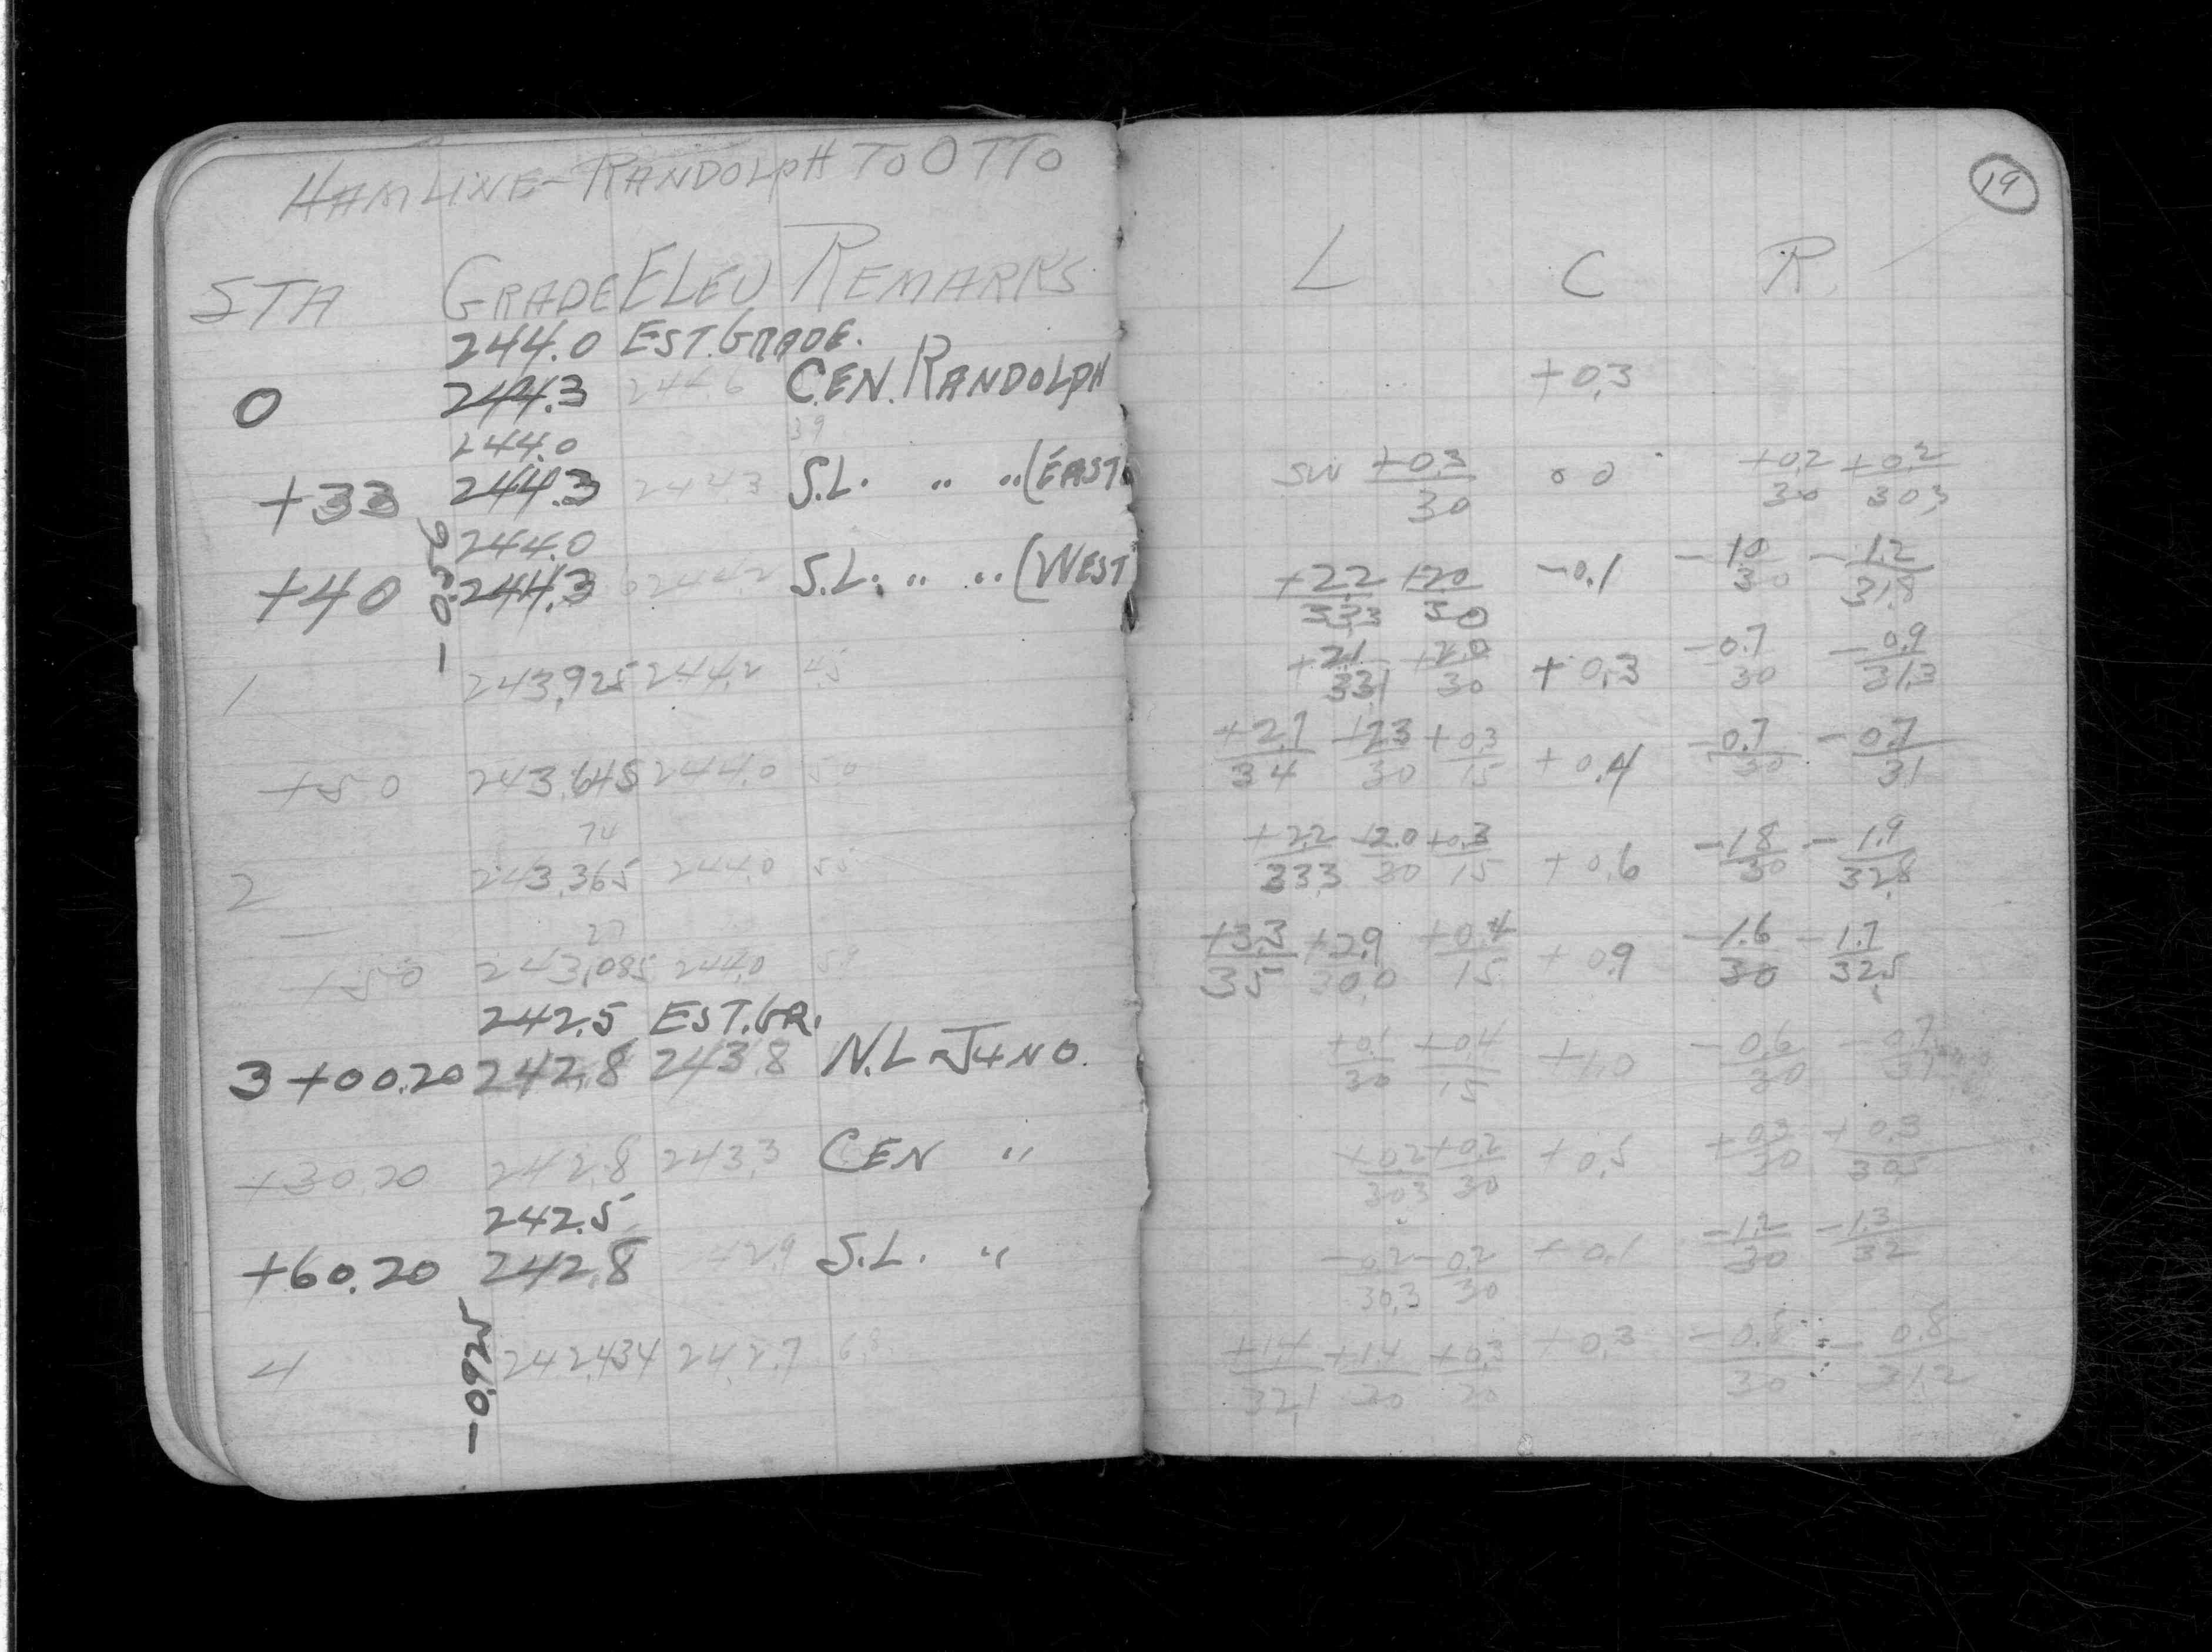 HAMLINE-RANDOLPH TO OTTO
STA GRADE ELEV REMARKS
244.0 EST. GRADE.
0 244.3 244.6 CEN. RANDOLPH
39
244.0
+33 244.3 244.3 S.L. " " (EAST
244.0
+40 244.3 244.2 S.L. " " (WEST
1 243.925 244.2 45
+50 243.645 244.0 50
74
2 243.365 244.0 55
27
+50 243.085 244.0 59
242.5 EST. GR.
3+00.20 242.8 243.8 N.L. JUNO.
+30.20 242.8 243.3 CEN "
242.5
+60.20 242.8 42.9 S.L. "
4 242.434 242.7 6.8
-0.925
19
L C R
+0.3
SW +0.3/30 00 +0.2/30 +0.2/30.3
+2.2/33.3 +2.0/30 -0.1 -1.0/30 -1.2/31.8
+2.1/33.1 +2.0/30 +0.3 -0.7/30 -0.9/31.3
+2.7/34 +2.3/30 +0.3/15 +0.4 -0.7/30 -0.7/31
+2.2/33.3 +2.0/30 +0.3/15 +0.6 -1.8/30 -1.9/32.8
+3.3/35 +2.9/30.0 +0.4/15 +0.9 -1.6/30 -1.7/32.5
+0.1/30 +0.4/15 +1.0 -0.6/30 -0.7/31
+0.2/30.3 +0.2/30 +0.5 +0.3/30 +0.3/30.5
-0.2/30.3 -0.2/30 +0.1 -1.2/30 -1.3/32
+1.4/32.1 +1.4/30 +0.3/20 +0.3 -0.8/30 -0.8/31.2